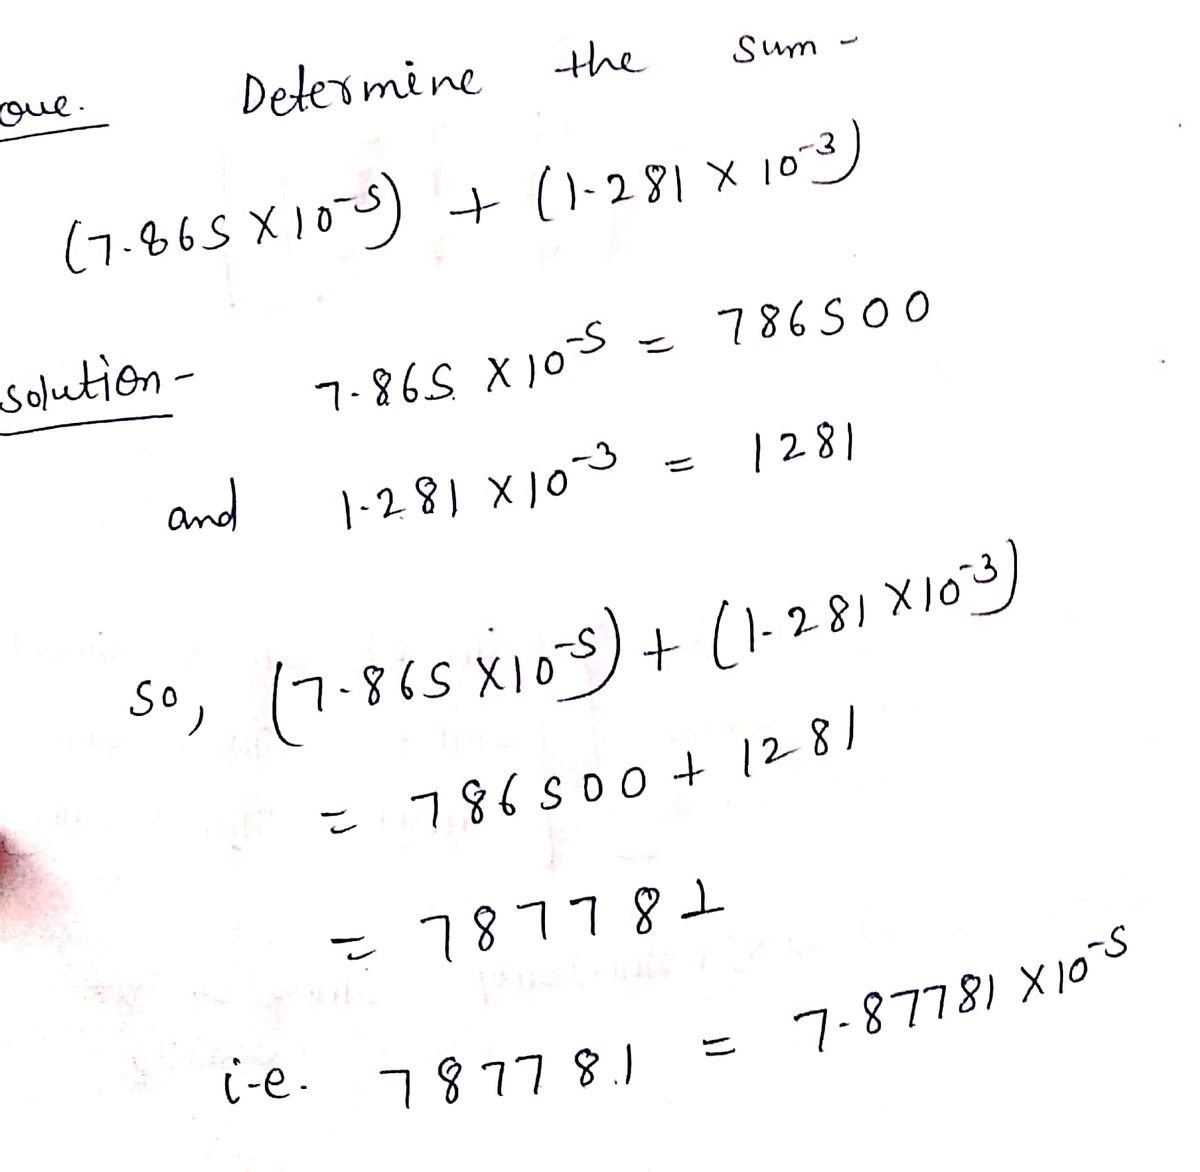 Que. Determine the sum -
(7.865 X 10⁻⁵) + (1.281 X 10⁻³)
solution - 7.865 X 10⁻⁵ = 786500
and 1.281 X 10⁻³ = 1281
so, (7.865 X10⁻⁵) + (1.281 X10⁻³)
= 786500 + 1281
= 787781
i.e. 787781 = 7.87781 X 10⁻⁵